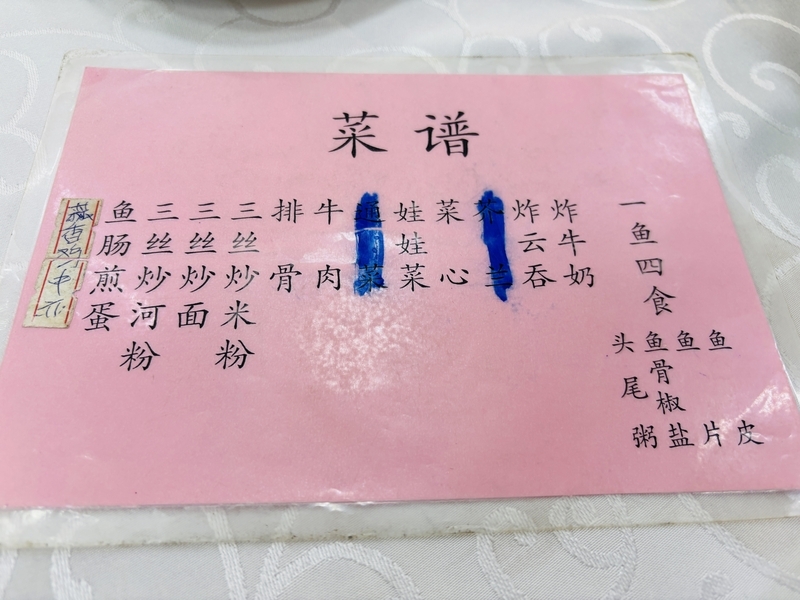 菜谱
一鱼四食
鱼皮
鱼片
鱼骨椒盐
头尾粥
炸牛奶
炸云吞
芥兰
菜心
娃娃菜
通菜
牛肉
排骨
三丝炒米粉
三丝炒面
三丝炒河粉
鱼肠煎蛋